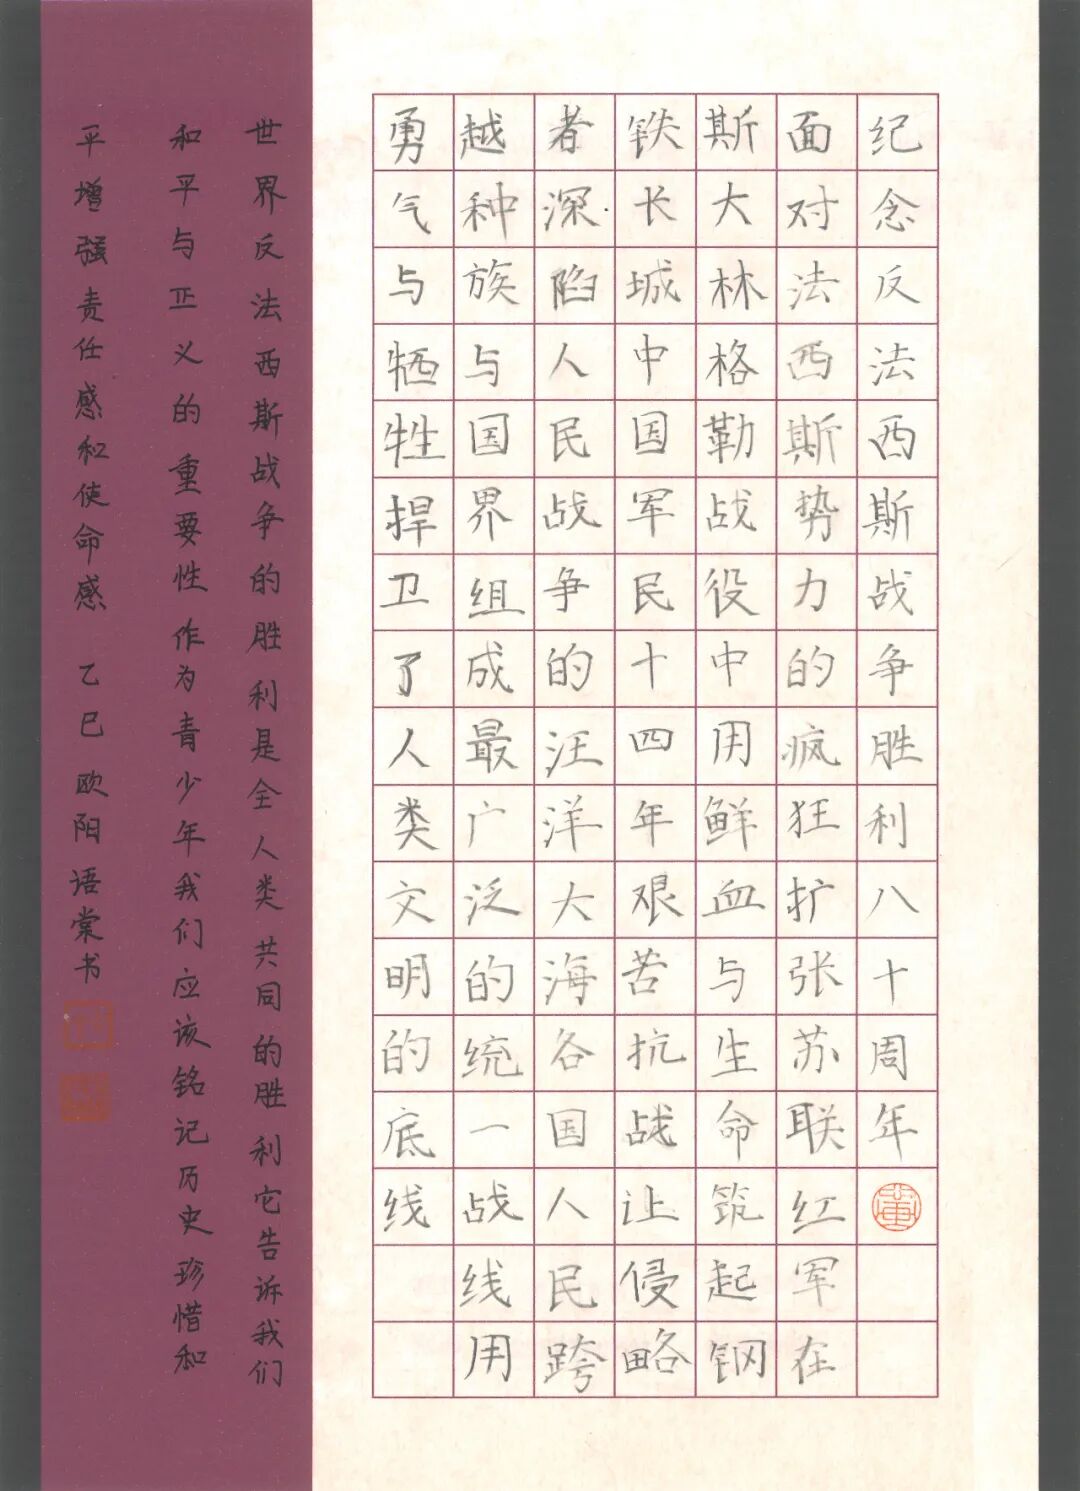 纪念反法西斯战争胜利八十周年
面对法西斯势力的疯狂扩张苏联红军在
斯大林格勒战役中用鲜血与生命筑起钢
铁长城中国军民十四年艰苦抗战让侵略
者深陷人民战争的汪洋大海各国人民跨
越种族与国界组成最广泛的统一战线用
勇气与牺牲捍卫了人类文明的底线
世界反法西斯战争的胜利是全人类共同的胜利它告诉我们
和平与正义的重要性作为青少年我们应该铭记历史珍惜和
平增强责任感和使命感 乙巳欧阳语棠书